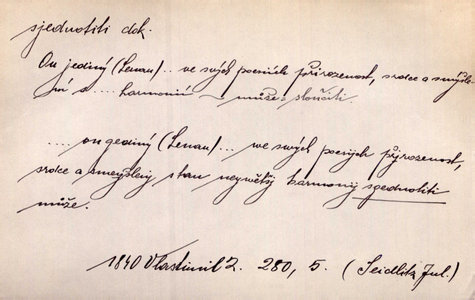 sjednotiti dok.
On jediný (Lenau)... ve svých poesiích přirozenost, srdce a smýšle-
ní v .... harmonii – může sloučiti.
.... on gediný (Lenau)... we swých poesijch přjrozenost,
srdce a smeyšlený s tau neywětšj harmonij sgednotiti
může.
1840 Vlastimil 2. 280, 5. (Seidlitz Jul.)